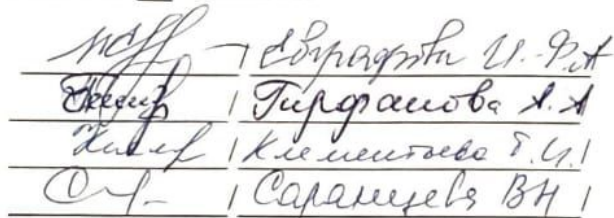 Евграфова И.Ф.
Гирфанова А.А
Клементьева Т.И.
Саранцева ВН